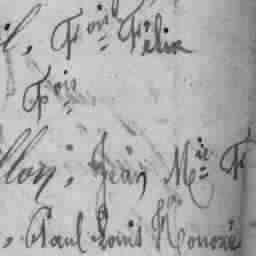 il, Fois Félix
Fois
llon, Jean Mie F
, Paul Louis Honoré